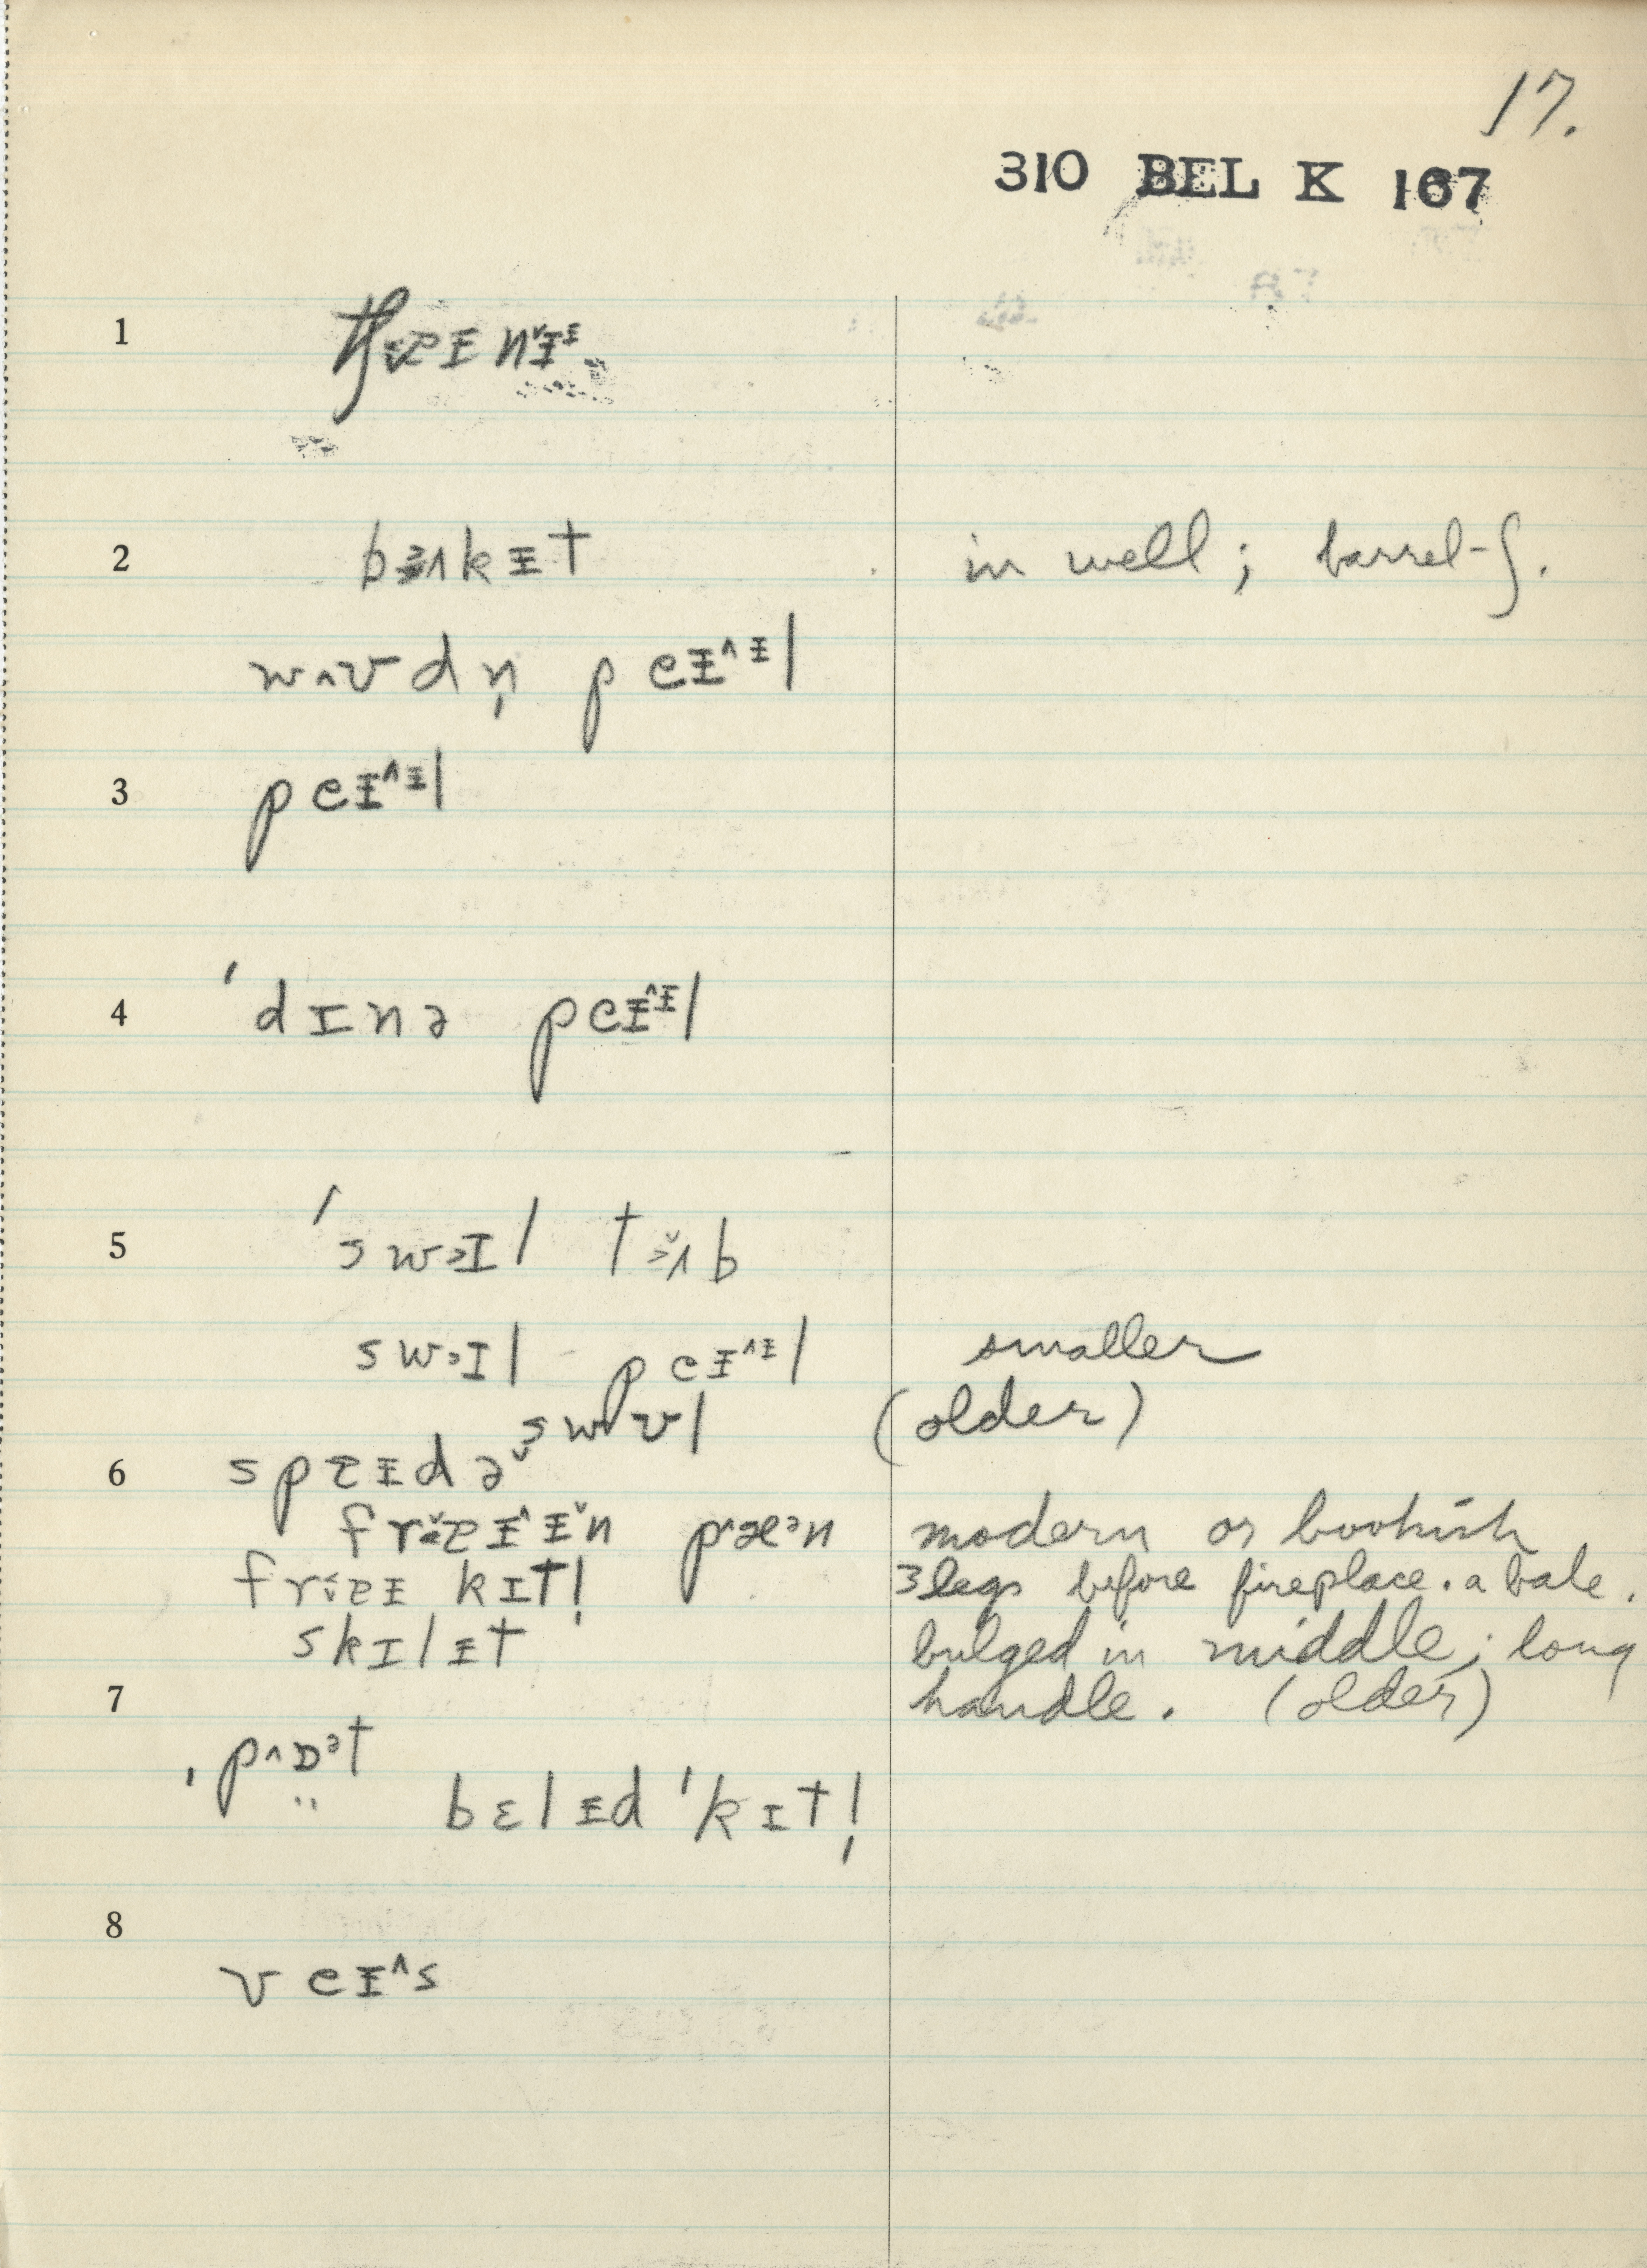 17.
310 BEL K 167
1
2 bɜʌkᵻt in well; barrel-ʃ.
wʌʊdn̩ peᵻ^ᵻl
3 peᵻ^ᵻl
4 ˈdɪnə peᵻ^ᵻl
5 ˈswɔɪl tɜ̌ʌb
swɔɪl peᵻ^ᵻl smaller
swɒʊl (older)
6 spɐᵻdə
frɐᵻ^ᵻˇn p^æᵊn modern or bookish
frɐᵻ kɪtl̩ 3 legs before fireplace. a bale.
skɪlᵻt bulged in middle; long
7 handle. (older)
ˌp^ɒ̤ᵊt
bɛlᵻd ˈkɪtl̩
8
veᵻ^s